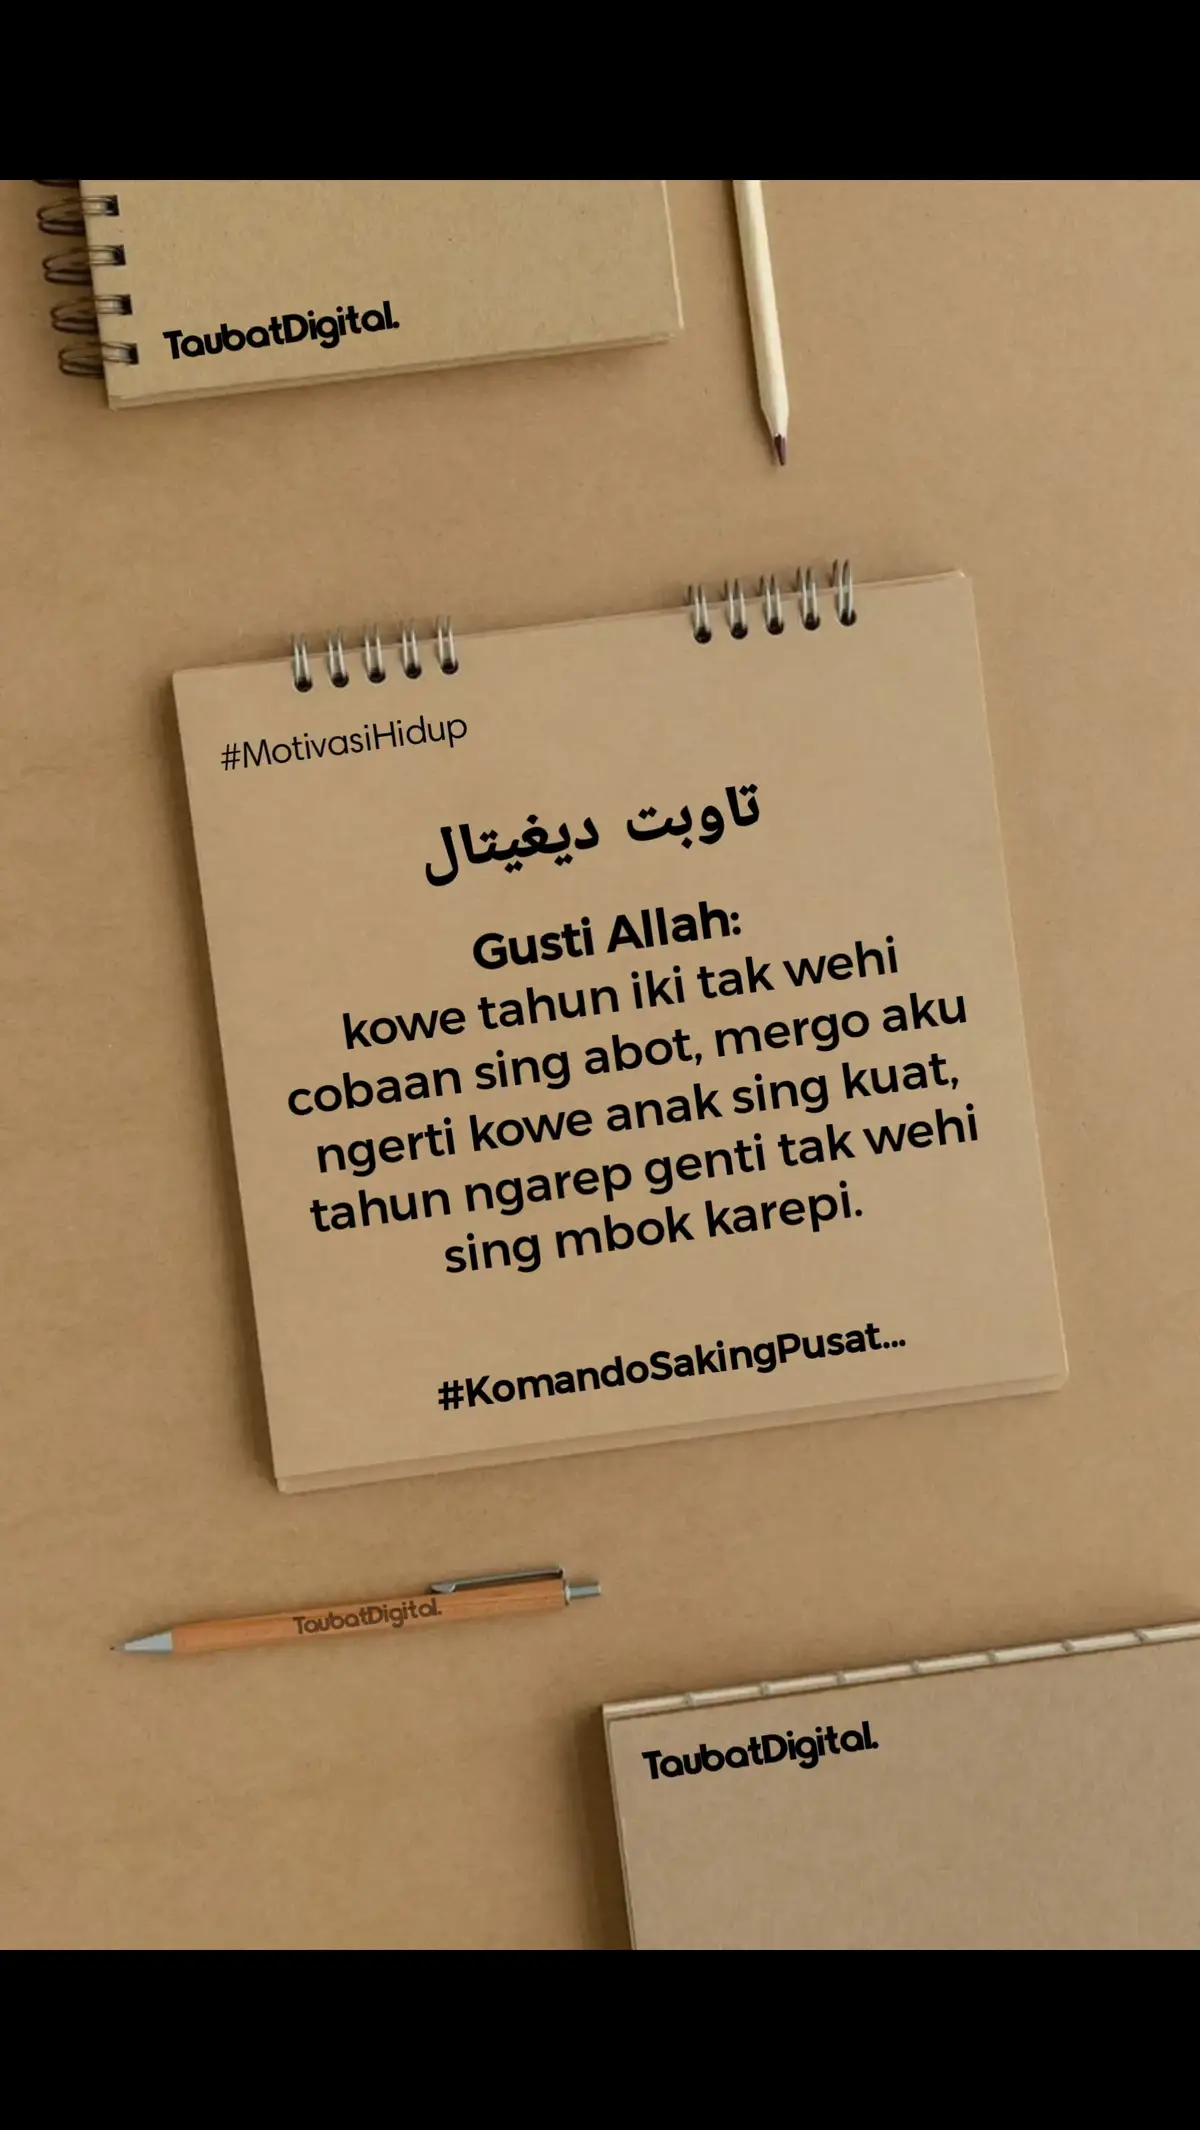 TaubatDigital.
#MotivasiHidup
تاوبت ديغيتال
Gusti Allah:
kowe tahun iki tak wehi
cobaan sing abot, mergo aku
ngerti kowe anak sing kuat,
tahun ngarep genti tak wehi
sing mbok karepi.
#KomandoSakingPusat...
TaubatDigital.
TaubatDigital.